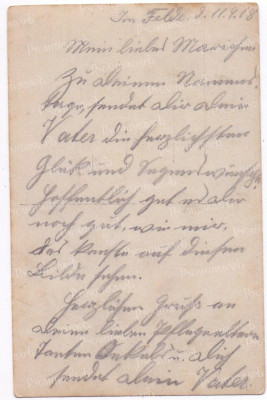 Im Felde. d. 11.9.18
Mein liebes Mariechen
Zu Deinem Namens-
tage, sendet Dir Dein
Vater die herzlichsten
Glük und Segenswünsche
Hoffentlich gut es Dir
noch gut, wie mir.
Das kannst auf diesem
Bilde sehen.
Herzlichen Gruß an
Deine lieben Pflegeeltern
Tanten Onkels u. Dich
sendet Dein Vater.